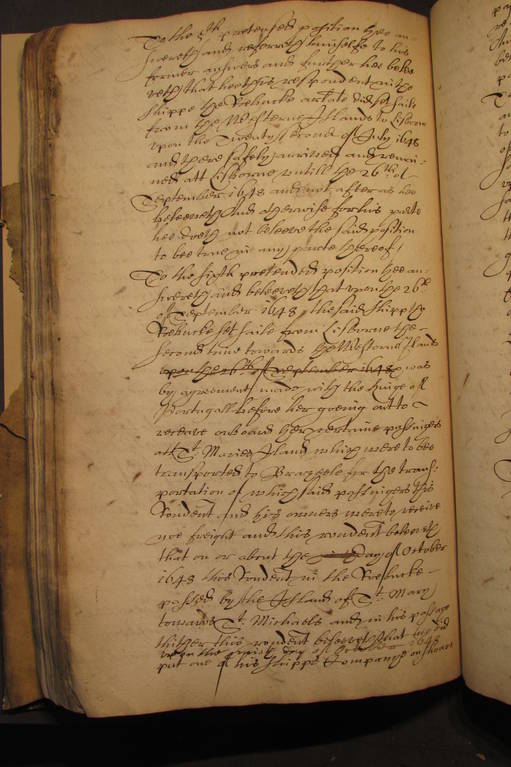 To the 5th pretensed position hee an-
swereth and referreth himselfe to his
former answers and further hee belee
veth that hee this respondent in the
shippe the Roebucke arlate did set saile
from the Westerne Islands to Lisborne
upon the Twenty second of July 1648
and there safely arrived and remai-
ned att Lisborne untill the 26th of
September 1648 and not after as hee
beleeveth And otherwise for his parte
hee doeth not beleeve the said position
to bee true in any parte thereof /
To the sixth pretended position hee an-
swereth and beleeveth that upon the 26th
of September 1648 the said shipp the
Roebucke set saile from Lisborne the
second time towards the Westerne Islands
upon the 26th of September 1648 & was
by agreement made with the Kinge of
Portugall before her going out to
receive onboard her certaine passingers
att St Maries Island which were to bee
transported to Brazeele for the trans-
portation of which said passingers this
rondent and his owners were to receive
noe freight and this rondent beleeveth
that on or about the day of October
1648 this rondent in the Roebucke
passed by the Island of St Mary
towards St Michaels and in his passage
thither this rondent beleeveth that hee did
upon the day of October 1648
put one of his shipps Company on shoare